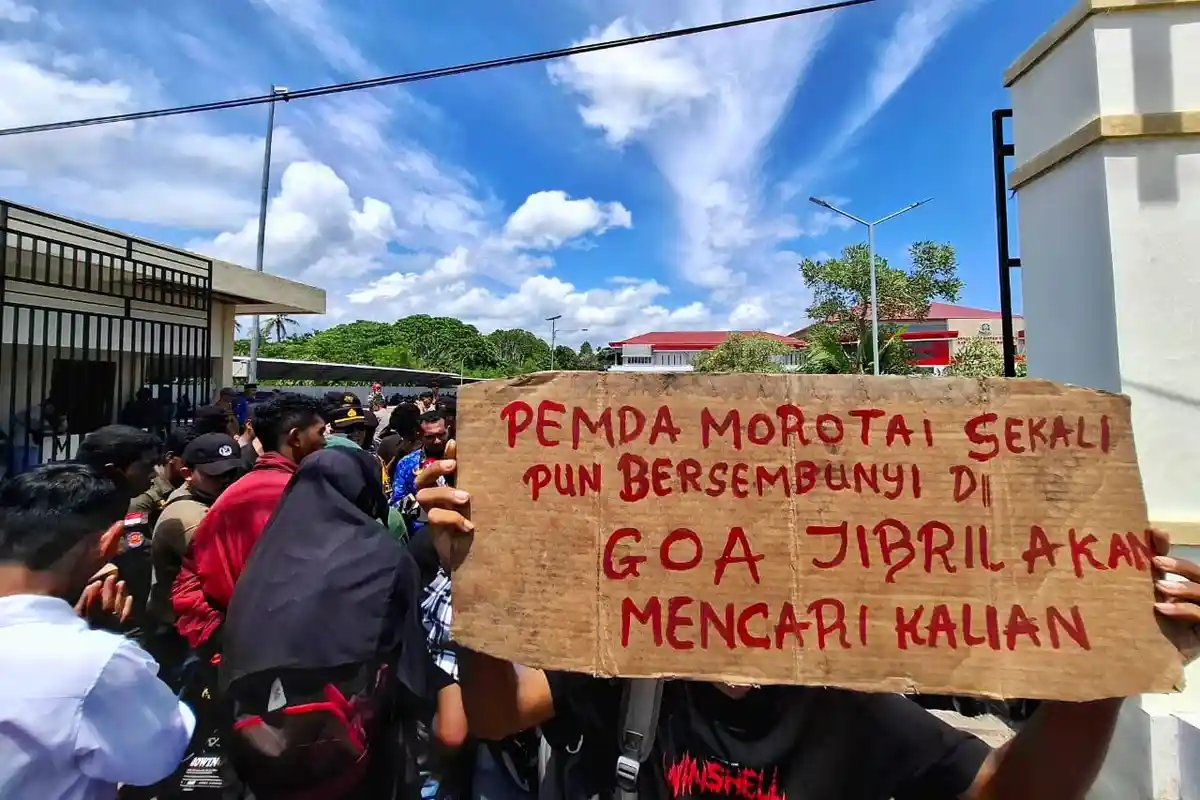 PEMDA MOROTAi SEKALI
PUN BERSEMBUNYI DI
GOA JIBRIL AKAN
MENCARI KALIAN
WINSHELL